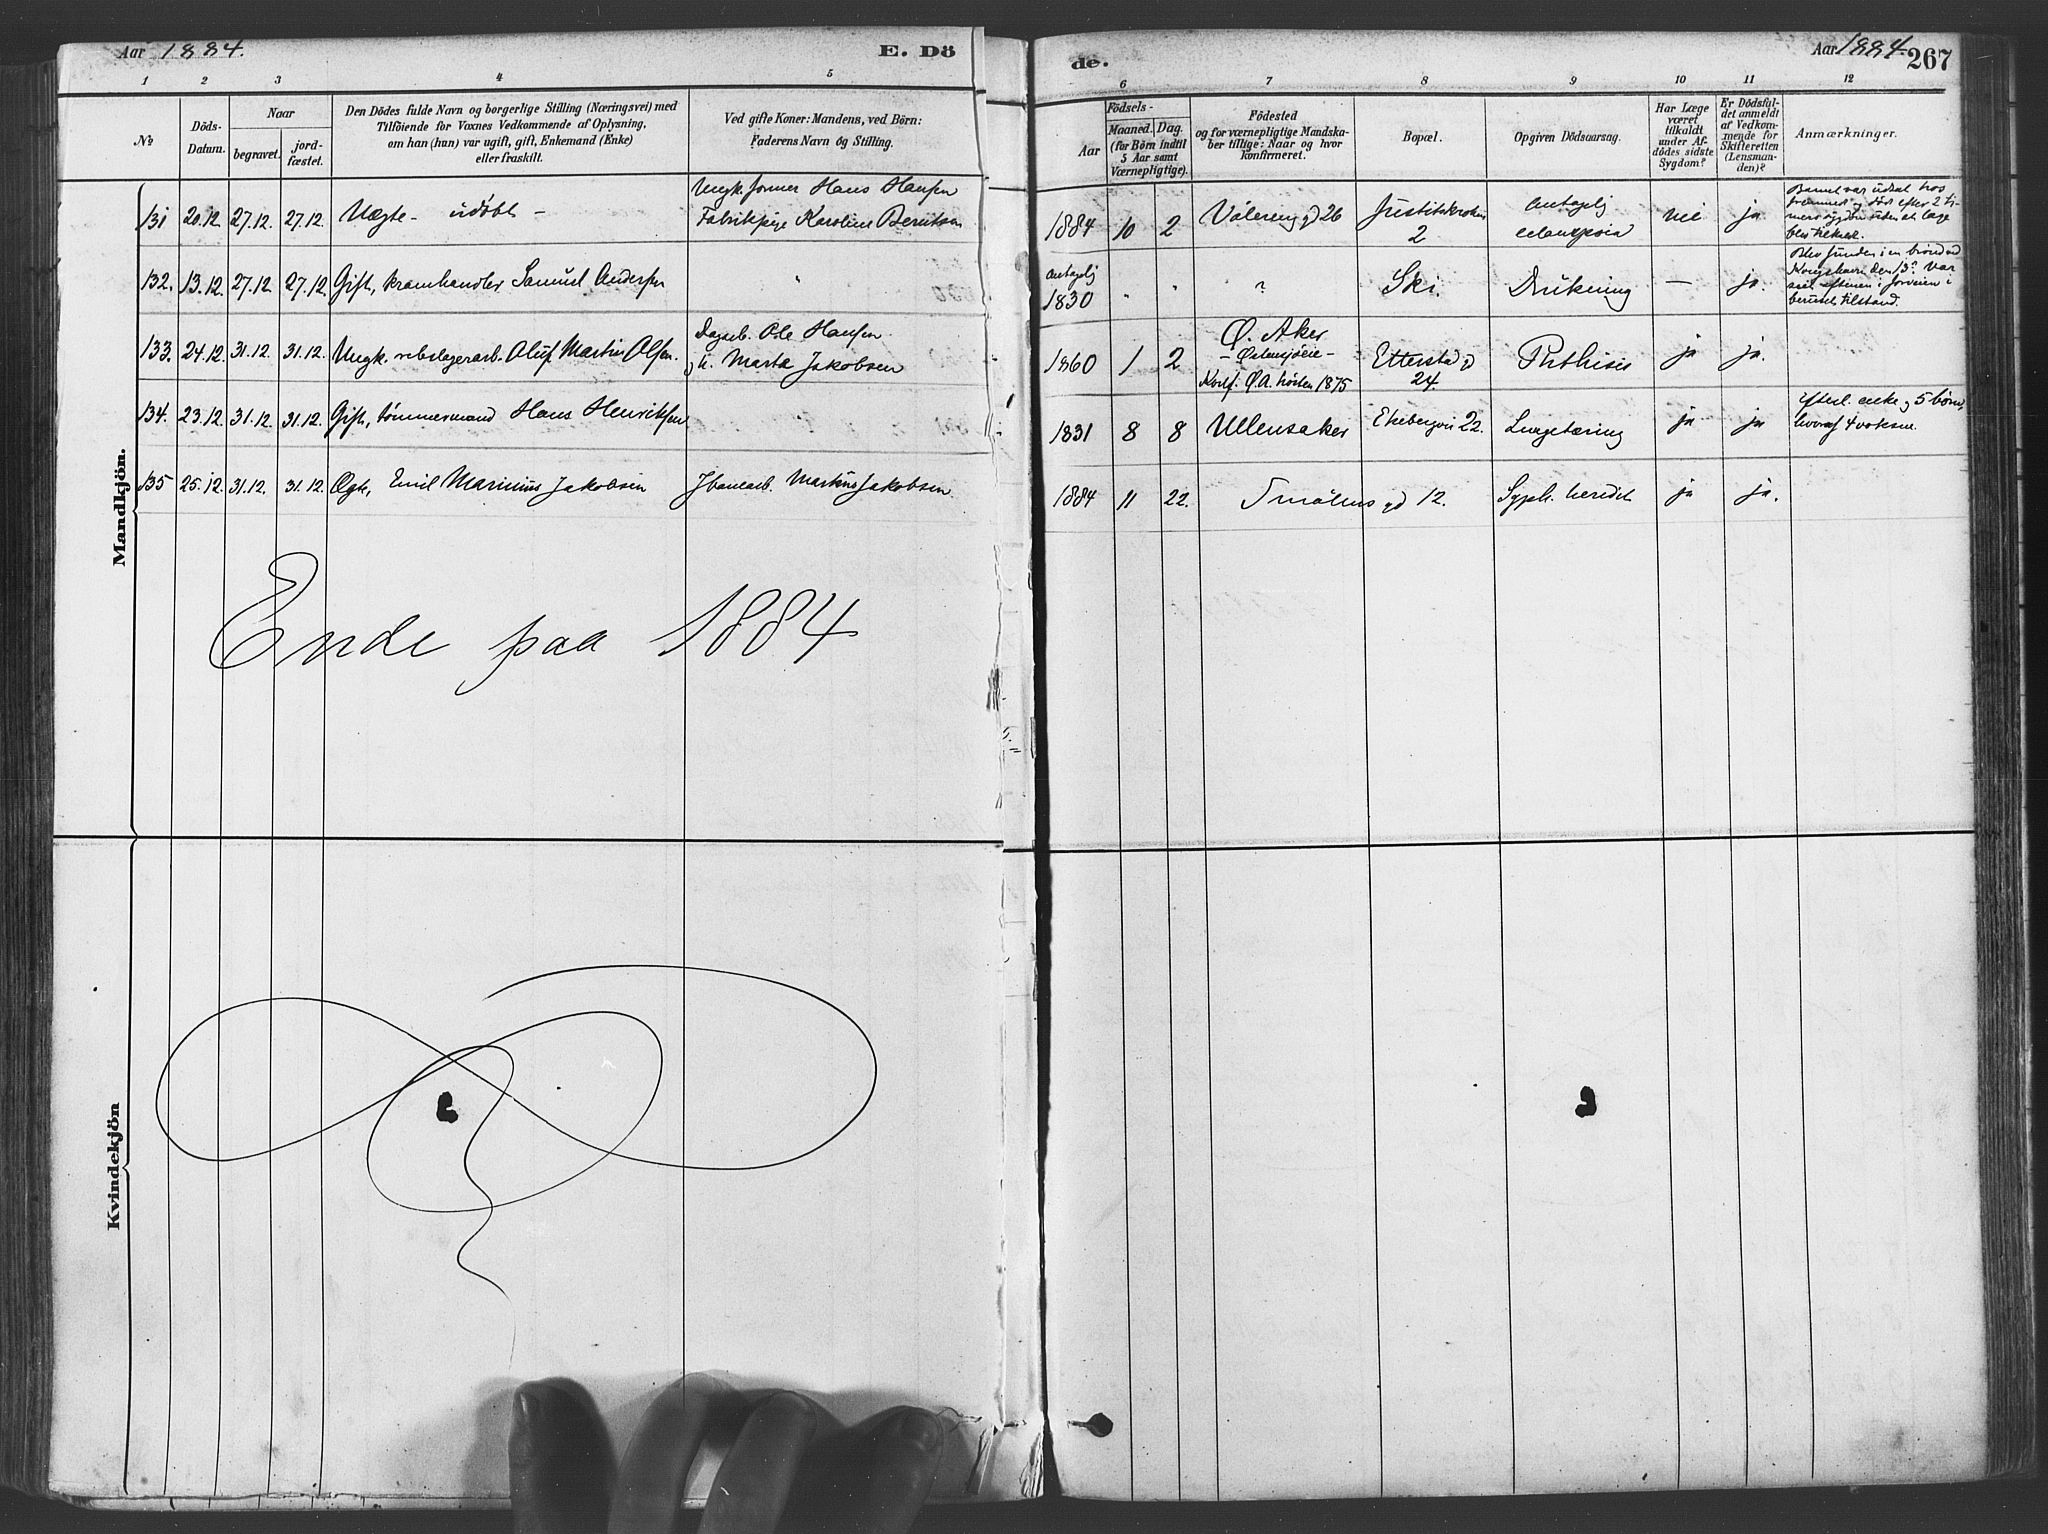 Aar 1884.
E. Dö
de.
Aar 1884.
267
1 2 3 4 5
6 7 8 9 10 11 12
No
Döds-
Datum.
Naar
begravet.
jord-
fæstet.
Den Dödes fulde Navn og borgerlige Stilling (Næringsvei) med
Tilföiende for Voxnes Vedkommende af Oplysning,
om han (hun) var ugift, gift, Enkemand (Enke)
eller fraskilt.
Ved gifte Koner: Mandens, ved Börn:
Faderens Navn og Stilling.
Födsels-
Aar
Maaned.
Dag.
(for Börn indtil
5 Aar samt
Værnepligtige).
Födested
og for værnepligtige Mandska-
ber tillige: Naar og hvor
konfirmeret.
Bopæl.
Opgiven Dödsaarsag.
Har Læge
været
tilkaldt
under Af-
dödes sidste
Sygdom?
Er Dödsfal-
det anmeldt
af Vedkom-
mende for
Skifteretten
(Lensman-
den)?
Anmærkninger.
Mandkjön.
131 20.12 27.12. 27.12. Uægte - udöbt -
Ungk. former Hans Hansen
Fabrikpige Karoline Berntsen
1884 10 2 Vålereng gd 26
2
Antagelig
nei ja
Barnet var udsat hos
fremmede og död efter 2 ti-
132. 13.12. 27.12 27.12. Gift, kramhandler Samuel Andersen "
antagelig
1830 " " ? Ski. Drukning — ja.
Blev funden i en brönd ved
Kongshavn den 13de. Var
beruset tilstand.
133. 24.12. 31.12. 31.12. Ungk. rebslagerarb. Oluf Martin Olsen.
Dagarb. Ole Hansen
og h. Marta Jakobsen
1860 1 2 Ö. Aker
- Östensjöeie -
Konf. Ö.A. hösten 1875
Etterstad gd
24.
Phthisis ja ja.
134. 23.12. 31.12 31.12. Gift, tömmermand Hans Henriksen
1831 8 8 Ullensaker Ekebergvei 22. Lungetæring ja ja
Efterl. enke og 5 börn,
hvoraf 4 voksne.
135 25.12. 31.12. 31.12. Ægte, Emil Marinius Jakobsen Jbanearb. Martinus Jakobsen.
1884 11 22. Smålens gd 12. Syph. heredit ja ja.
Ende paa 1884
Kvindekjön